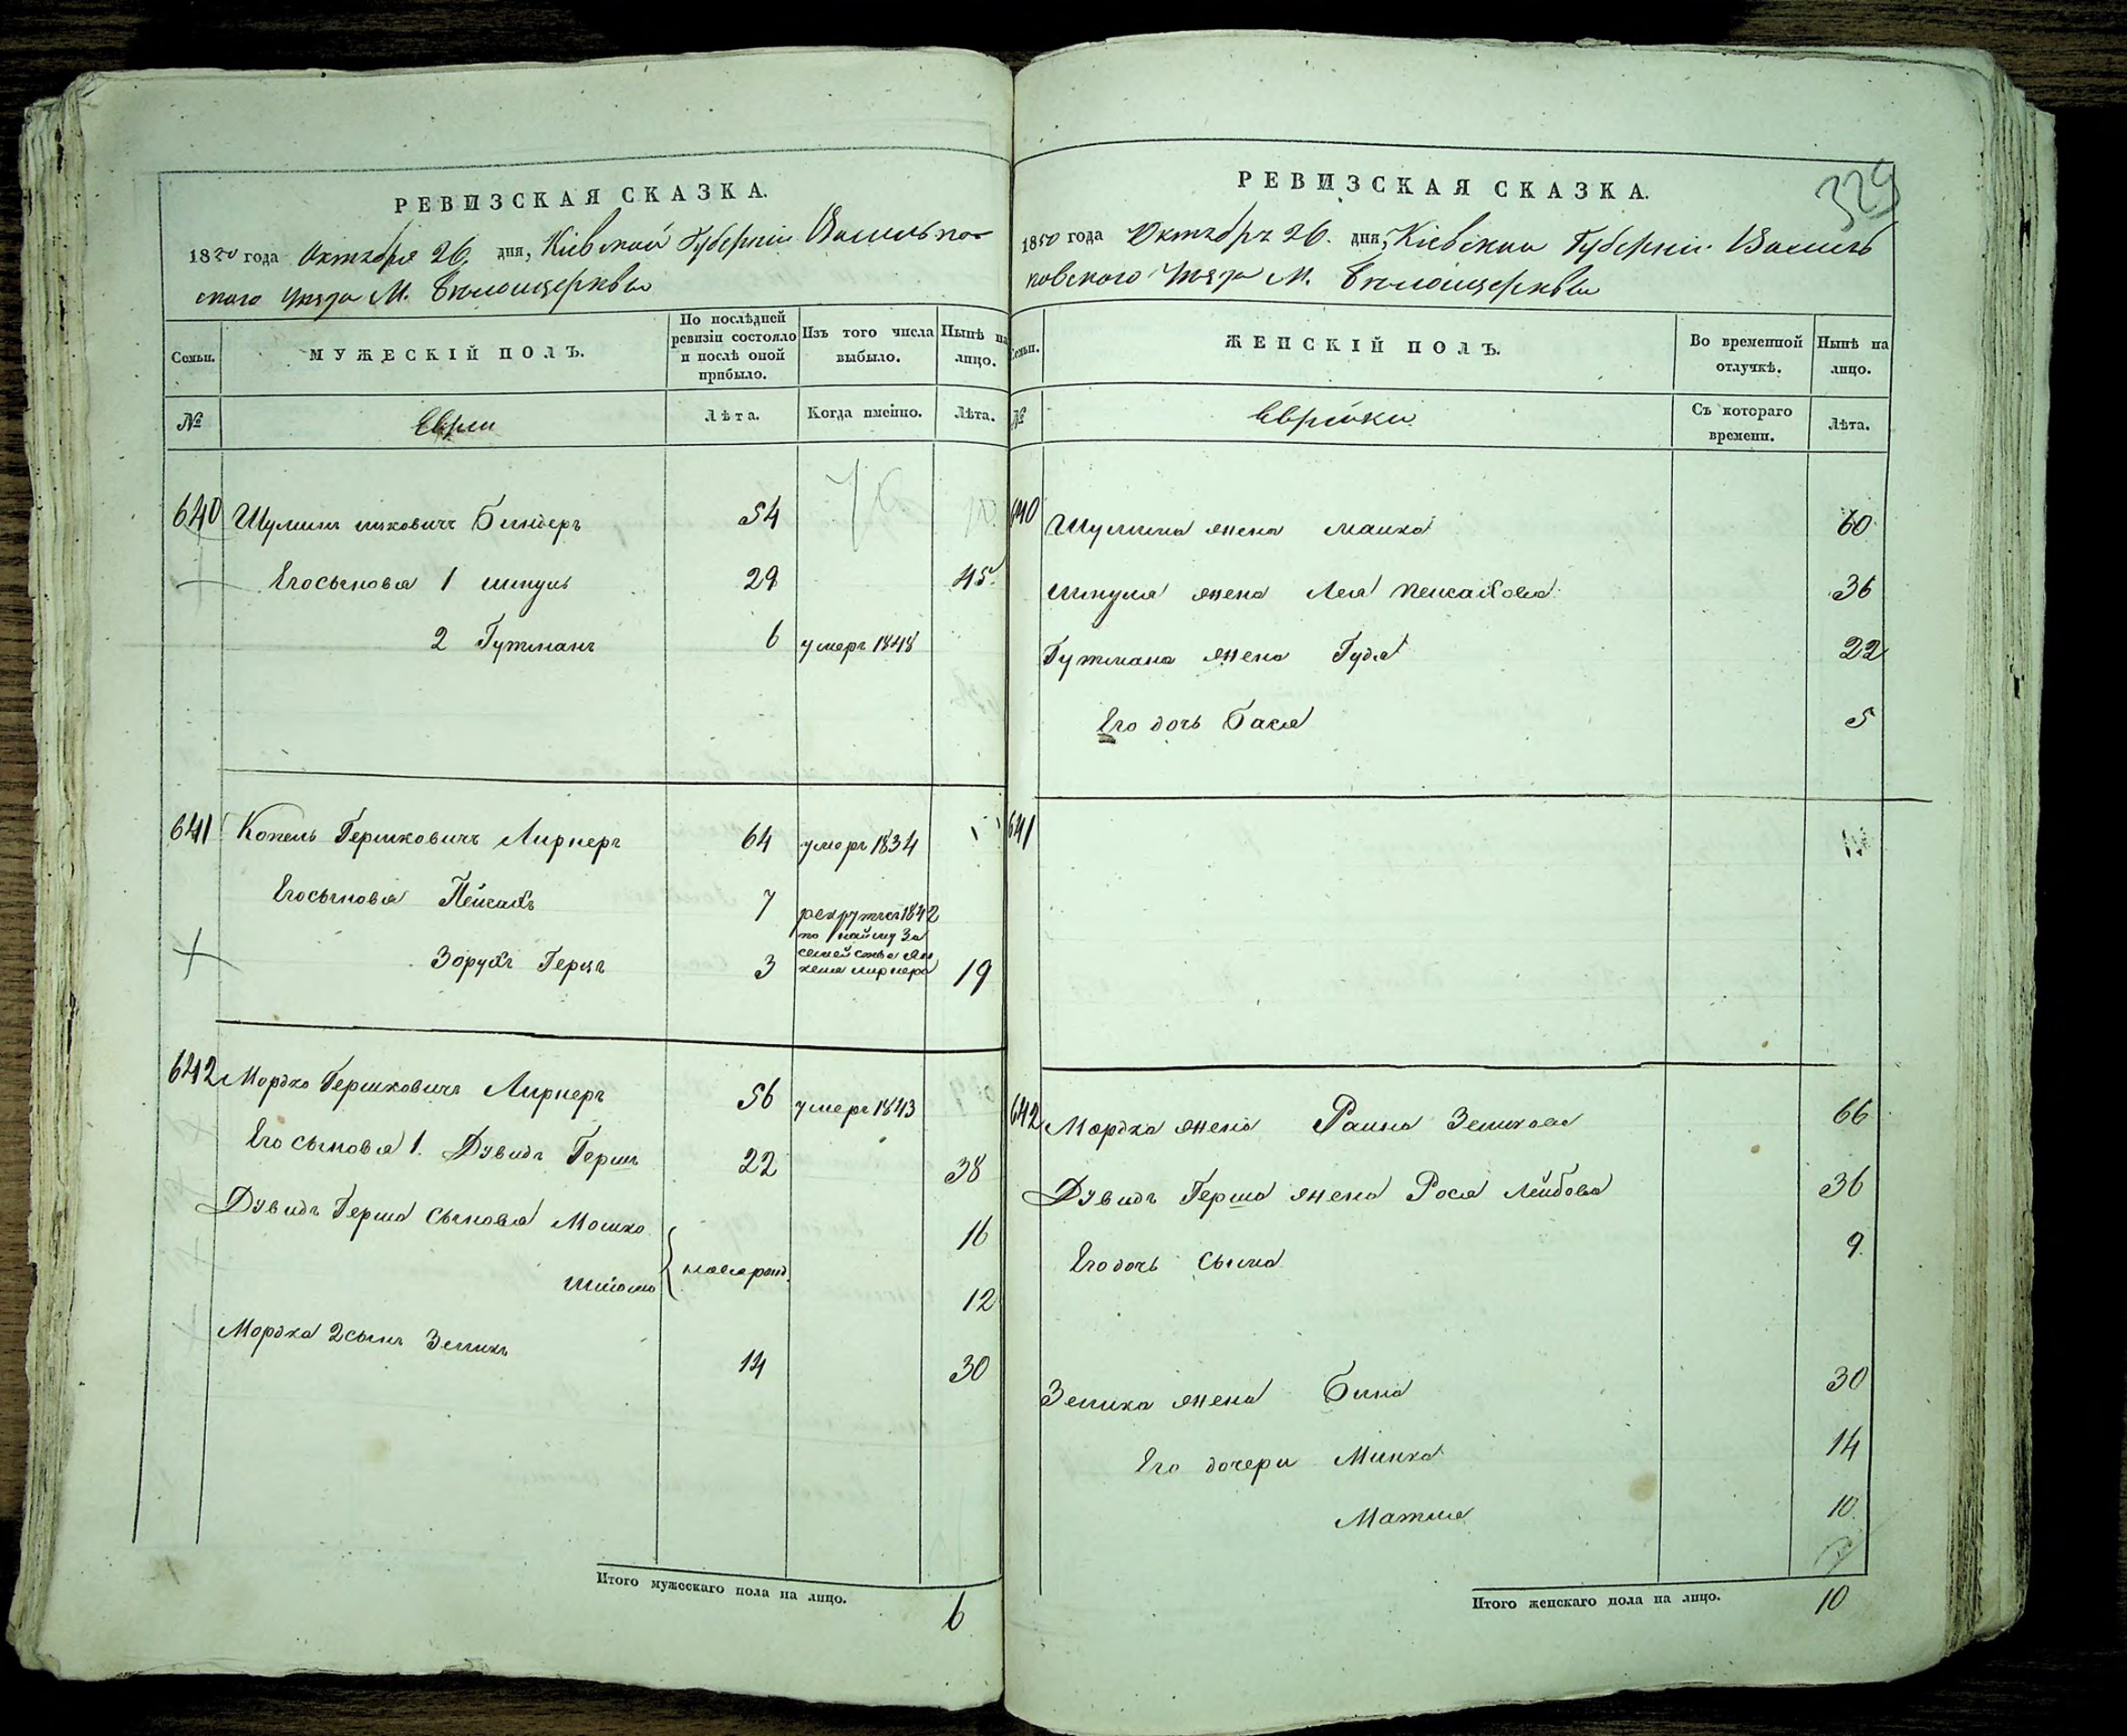 РЕВИЗСКАЯ СКАЗКА.
1850 года Октября 26 дня, Кіевской Губерніи Васильков-
ского уѣзда М. Бѣлоцеркви
Семьи.
МУЖЕСКІЙ ПОЛЪ.
По послѣдней ревизіи состояло и послѣ оной прибыло.
Изъ того числа выбыло.
Нынѣ на лицо.
№
Евреи
Лѣта.
Когда именно.
Лѣта.
640 Шулимъ Ицковичъ Биндеръ 54
Его сыновья 1 Шмуль 29 45
2 Гутманъ 6 умеръ 1848
641 Копель Гершковичъ Лирнеръ 64 умеръ 1834
Его сыновья Пейсахъ 7 рекрутъ съ 1842
по найму за
семейство Ян
келя Лирнера
Зорухъ Герцъ 3 19
642 Мордко Гершковичъ Лирнеръ 56 умеръ 1843
Его сыновья 1. Дувидъ Гершъ 22 38
Дувидъ Герша сыновья Мошко 16
новорожд.
Шліома 12
Мордка 2 сынъ Зеликъ 14 30
Итого мужескаго пола на лицо. 6
329
РЕВИЗСКАЯ СКАЗКА.
1850 года Октября 26. дня, Кіевской Губерніи Василь
ковского уѣзда М. Бѣлоцеркви
Семьи.
ЖЕНСКІЙ ПОЛЪ.
Во временной отлучкѣ.
Нынѣ на лицо.
№
Еврейки
Съ котораго времени.
Лѣта.
640 Шулима жена Малка 60
Шмуля жена Лея Пейсахова 36
Гутмана жена Гудя 22
Его дочь Бася 5
641
642 Мордка жена Раина Зеликова 66
Дувидъ Герша жена Рося Лейбова 36
Его дочь Сыма 9
Зелика жена Бина 30
Его дочери Минка 14
Матля 10
Итого женскаго пола на лицо. 10